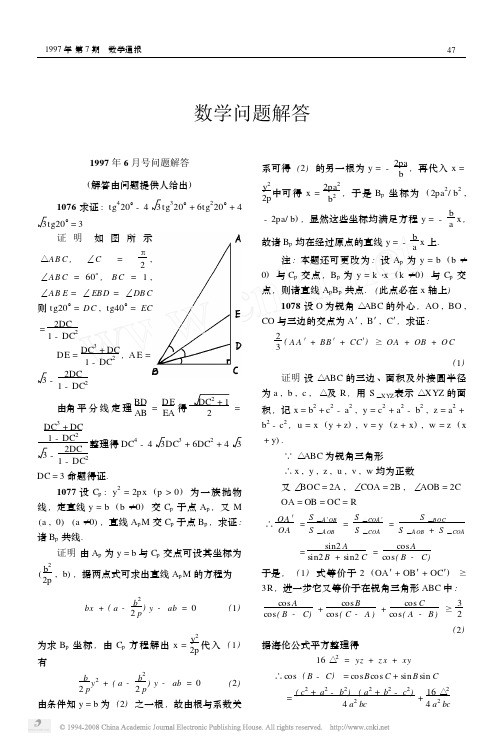 1997 年 第 7 期　数学通报
47
数学问题解答
1997 年 6 月号问题解答
(解答由问题提供人给出)
1076 求证：tg⁴20° - 4√3tg³20° + 6tg²20° + 4
√3tg20° = 3
证　明　如　图　所　示
△ABC，∠C = π/2，
∠ABC = 60°，BC = 1，
∠ABE = ∠EBD = ∠DBC
则 tg20° = DC，tg40° = EC
= 2DC/(1 - DC²)
DE = (DC³ + DC)/(1 - DC²)，AE =
√3 - 2DC/(1 - DC²)
A
E
D
B
C
由角平分线定理 BD/AB = DE/EA 得 √(DC² + 1)/2 =
((DC³ + DC)/(1 - DC²))/(√3 - 2DC/(1 - DC²)) 整理得 DC⁴ - 4√3DC³ + 6DC² + 4√3
DC = 3 命题得证.
1077 设 Cp：y² = 2px (p > 0) 为一族抛物
线，定直线 y = b (b ≠0) 交 Cp 于点 Ap，又 M
(a，0) (a ≠0)，直线 ApM 交 Cp 于点 Bp，求证：
诸 Bp 共线.
证明　由 Ap 为 y = b 与 Cp 交点可设其坐标为
(b²/2p，b)，据两点式可求出直线 ApM 的方程为
bx + (a - b²/2p)y - ab = 0　(1)
为求 Bp 坐标，由 Cp 方程解出 x = y²/2p 代入 (1)
有
b/2p y² + (a - b²/2p)y - ab = 0　(2)
由条件知 y = b 为 (2) 之一根，故由根与系数关
系可得 (2) 的另一根为 y = - 2pa/b，再代入 x =
y²/2p 中可得 x = 2pa²/b²，于是 Bp 坐标为 (2pa²/b²，
- 2pa/b)，显然这些坐标均满足方程 y = - b/a x，
故诸 Bp 均在经过原点的直线 y = - b/a x 上.
注：本题还可更改为：设 Ap 为 y = b (b ≠
0) 与 Cp 交点，Bp 为 y = k ·x (k ≠0) 与 Cp 交
点，则诸直线 ApBp 共点. (此点必在 x 轴上)
1078 设 O 为锐角 △ABC 的外心，AO，BO，
CO 与三边的交点为 A′，B′，C′，求证：
2/3 (AA′ + BB′ + CC′) ≥ OA + OB + OC
(1)
证明　设 △ABC 的三边、面积及外接圆半径
为 a，b，c，△及 R，用 S△XYZ表示 △XYZ 的面
积，记 x = b² + c² - a²，y = c² + a² - b²，z = a² +
b² - c²，u = x (y + z)，v = y (z + x)，w = z (x
+ y).
∵ △ABC 为锐角三角形
∴ x，y，z，u，v，w 均为正数
又 ∠BOC = 2A，∠COA = 2B，∠AOB = 2C
OA = OB = OC = R
∴ OA′/OA = S△A′OB/S△AOB = S△COA′/S△COA = S△BOC/(S△AOB + S△COA)
= sin2A/(sin2B + sin2C) = cosA/cos(B - C)
于是，(1) 式等价于 2 (OA′ + OB′ + OC′) ≥
3R，进一步它又等价于在锐角三角形 ABC 中：
cosA/cos(B - C) + cosB/cos(C - A) + cosC/cos(A - B) ≥ 3/2
(2)
据海伦公式平方整理得
16 △² = yz + zx + xy
∴ cos (B - C) = cosBcosC + sinBsinC
= (c² + a² - b²) (a² + b² - c²)/4a²bc + 16 △²/4a²bc
© 1994-2008 China Academic Journal Electronic Publishing House. All rights reserved. http://www.cnki.net